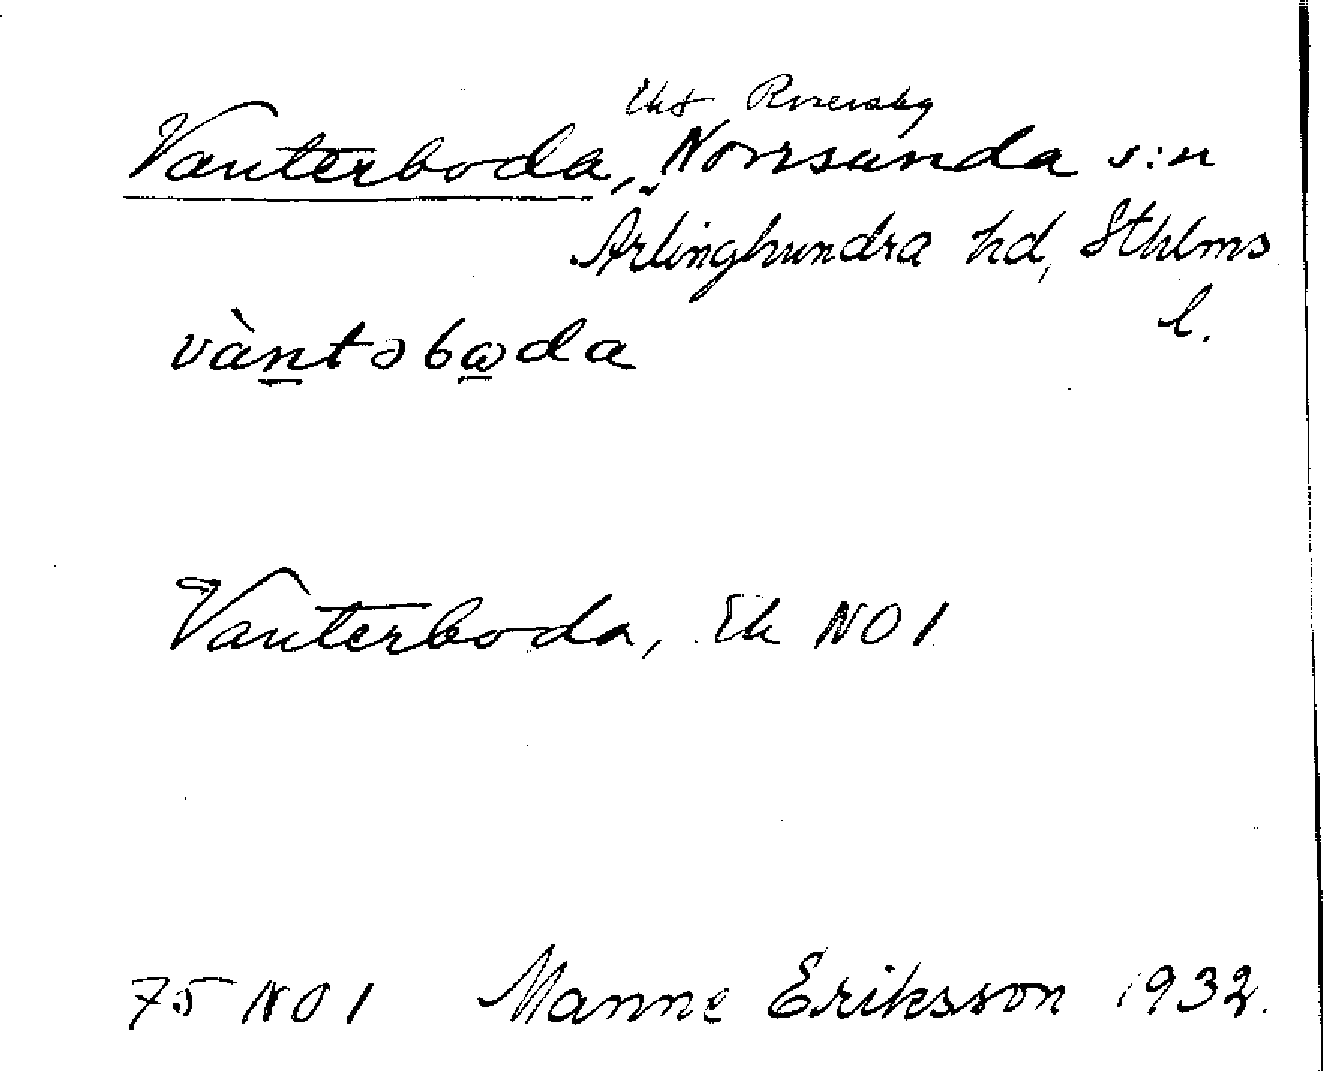 Uts Rosersby
Vanterboda, Norrsunda s:n
Ärlinghundra hd, Sthlms
l.
vàntəbωda
Vanterboda, Ek NO1
75 NO1 Manne Eriksson 1932.